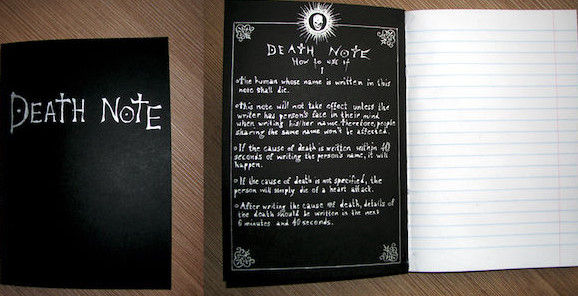 DEATH NOTE
DEATH NOTE
HOW TO USE IT
I
The human whose name is written in this
note shall die.
This note will not take effect unless the
writer has person's face in their mind
when writing his/her name. Therefore, people
sharing the same name won't be affected.
If the cause of death is written within 40
seconds of writing the person's name, it will
happen.
If the cause of death is not specified, the
person will simply die of a heart attack.
After writing the cause of death, details of
the death should be written in the next
6 minutes and 40 seconds.